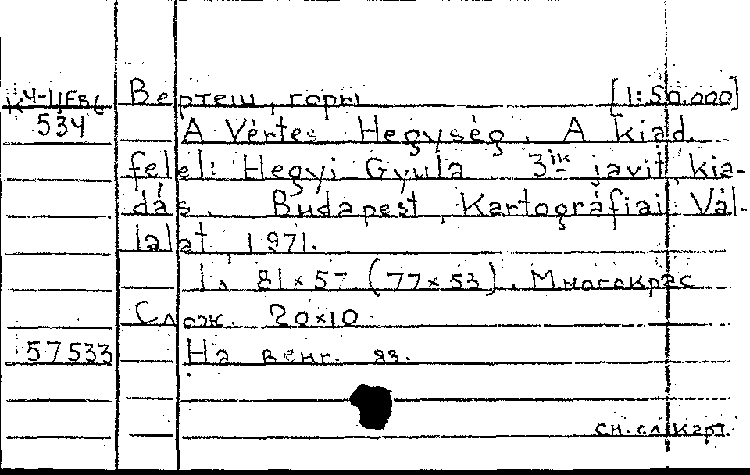 К4-ЦЕв6 Вертеш, горы [1:50.000]
534 A Vértes Hegység. A kiad.
felel: Hegyi Gyula 3ik javit. kia-
dás. Budapest, Kartográfiai Vál-
lalat, 1971.
1. 81×57 (77×53). Многокрас
Слож. 20×10.
57533 На венг. яз.
см. сл. карт.